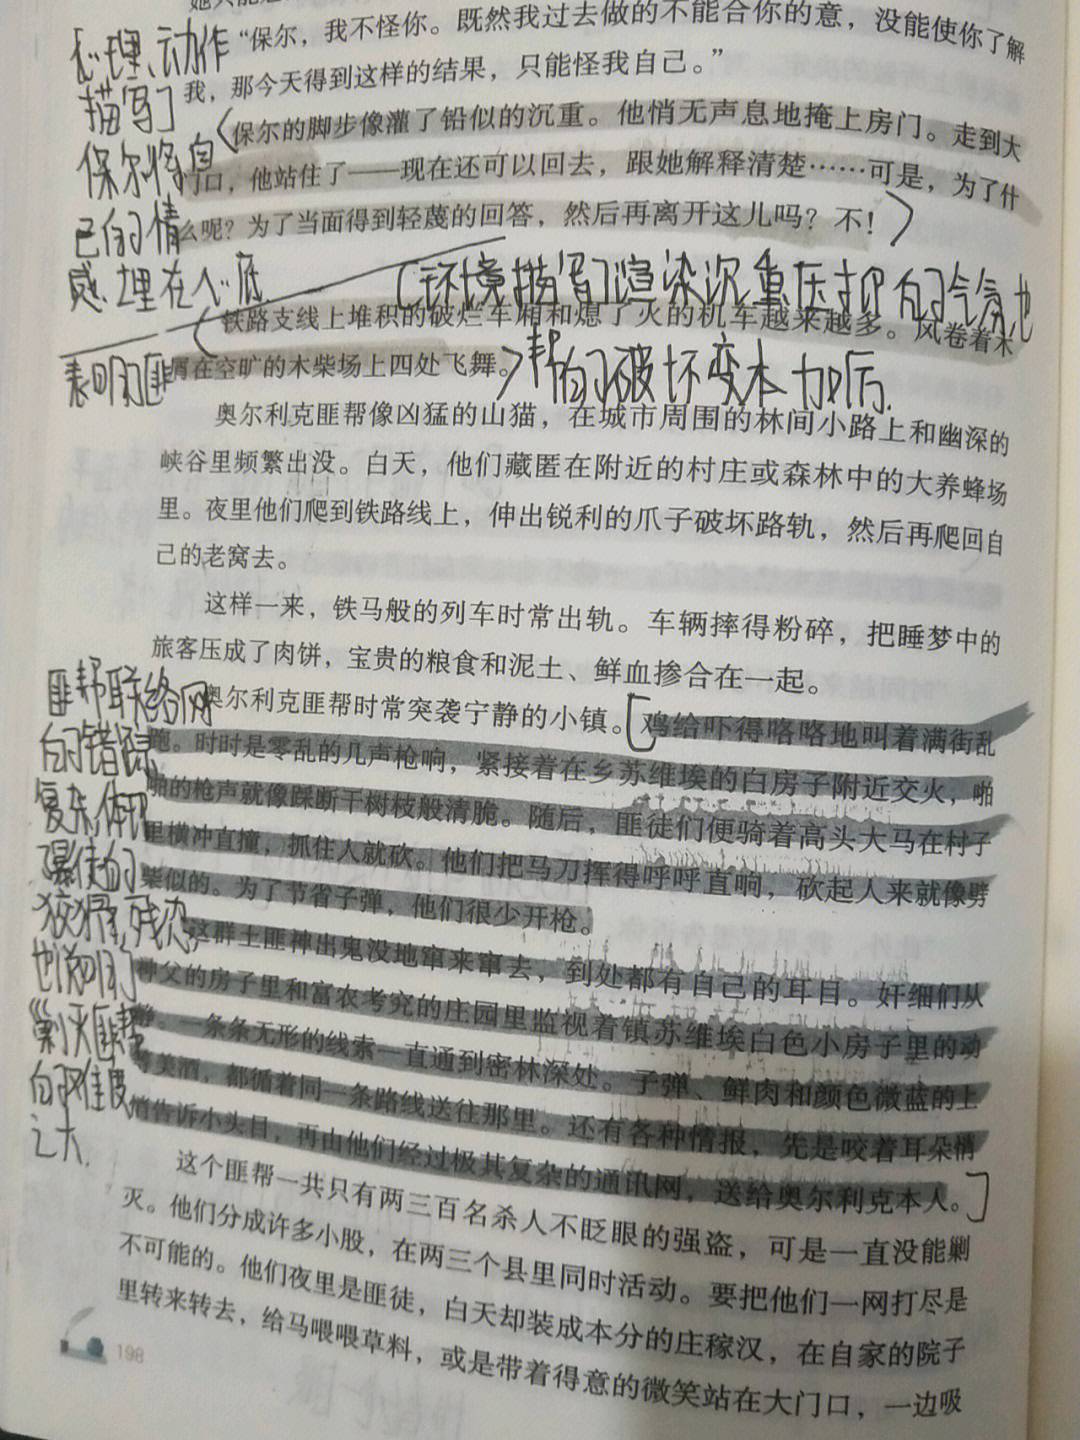 “保尔，我不怪你。既然我过去做的不能合你的意，没能使你了解
我，那今天得到这样的结果，只能怪我自己。”
保尔的脚步像灌了铅似的沉重。他悄无声息地掩上房门。走到大
门口，他站住了——现在还可以回去，跟她解释清楚……可是，为了什
么呢？为了当面得到轻蔑的回答，然后再离开这儿吗？不！
心理、动作
描写了
保尔将自
己的情
感埋在心底
环境描写了渲染沉重压抑的气氛，也
表明了匪
帮的破坏变本加厉.
铁路支线上堆积的破烂车厢和熄了火的机车越来越多。风卷着木
屑在空旷的木柴场上四处飞舞。
奥尔利克匪帮像凶猛的山猫，在城市周围的林间小路上和幽深的
峡谷里频繁出没。白天，他们藏匿在附近的村庄或森林中的大养蜂场
里。夜里他们爬到铁路线上，伸出锐利的爪子破坏路轨，然后再爬回自
己的老窝去。
这样一来，铁马般的列车时常出轨。车辆摔得粉碎，把睡梦中的
旅客压成了肉饼，宝贵的粮食和泥土、鲜血掺合在一起。
奥尔利克匪帮时常突袭宁静的小镇。鸡给吓得咯咯地叫着满街乱
跑。时时是零乱的几声枪响，紧接着在乡苏维埃的白房子附近交火，啪
啪的枪声就像踩断干树枝般清脆。随后，匪徒们便骑着高头大马在村子
里横冲直撞，抓住人就砍。他们把马刀挥得呼呼直响，砍起人来就像劈
柴似的。为了节省子弹，他们很少开枪。
这群土匪神出鬼没地窜来窜去，到处都有自己的耳目。奸细们从
神父的房子里和富农考究的庄园里监视着镇苏维埃白色小房子里的动
静。一条条无形的线索一直通到密林深处。子弹、鲜肉和颜色微蓝的上
等美酒，都循着同一条路线送往那里。还有各种情报，先是咬着耳朵悄
悄告诉小头目，再由他们经过极其复杂的通讯网，送给奥尔利克本人。
匪帮联络网
的错综
复杂，体现
暴徒的
狡猾，残忍，
也说明了
剿灭匪帮
的难度
之大.
这个匪帮一共只有两三百名杀人不眨眼的强盗，可是一直没能剿
灭。他们分成许多小股，在两三个县里同时活动。要把他们一网打尽是
不可能的。他们夜里是匪徒，白天却装成本分的庄稼汉，在自家的院子
里转来转去，给马喂喂草料，或是带着得意的微笑站在大门口，一边吸
198